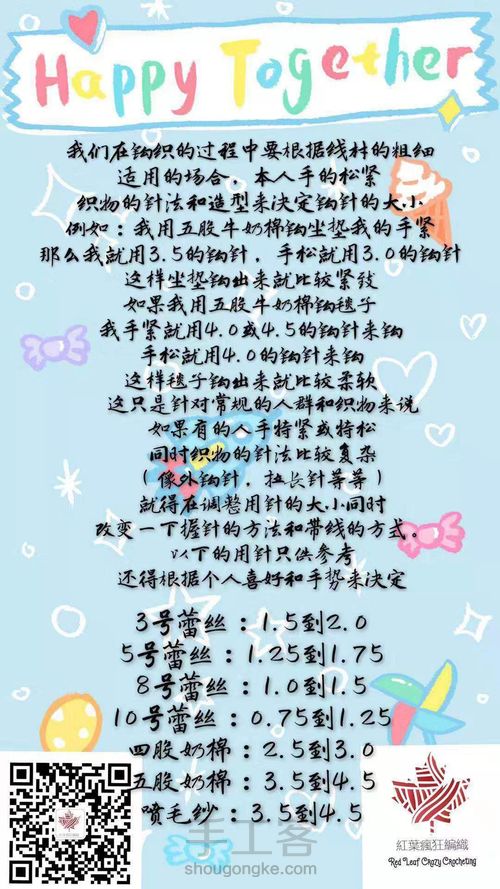 Happy Together
我们在钩织的过程中要根据线材的粗细
适用的场合。本人手的松紧
织物的针法和造型来决定钩针的大小
例如：我用五股牛奶棉钩坐垫我的手紧
那么我就用3.5的钩针，手松就用3.0的钩针
这样坐垫钩出来就比较紧致
如果我用五股牛奶棉钩毯子
我手紧就用4.0或4.5的钩针来钩
手松就用4.0的钩针来钩
这样毯子钩出来就比较柔软
这只是针对常规的人群和织物来说
如果有的人手特紧或特松
同时织物的针法比较复杂
（像外钩针，拉长针等等）
就得在调整用针的大小同时
改变一下握针的方法和带线的方式。
以下的用针只供参考
还得根据个人喜好和手势来决定
3号蕾丝：1.5到2.0
5号蕾丝：1.25到1.75
8号蕾丝：1.0到1.5
10号蕾丝：0.75到1.25
四股奶棉：2.5到3.0
五股奶棉：3.5到4.5
喷毛纱：3.5到4.5
紅葉瘋狂編織
Red Leaf Crazy Crocheting
手工客
shougongke.com